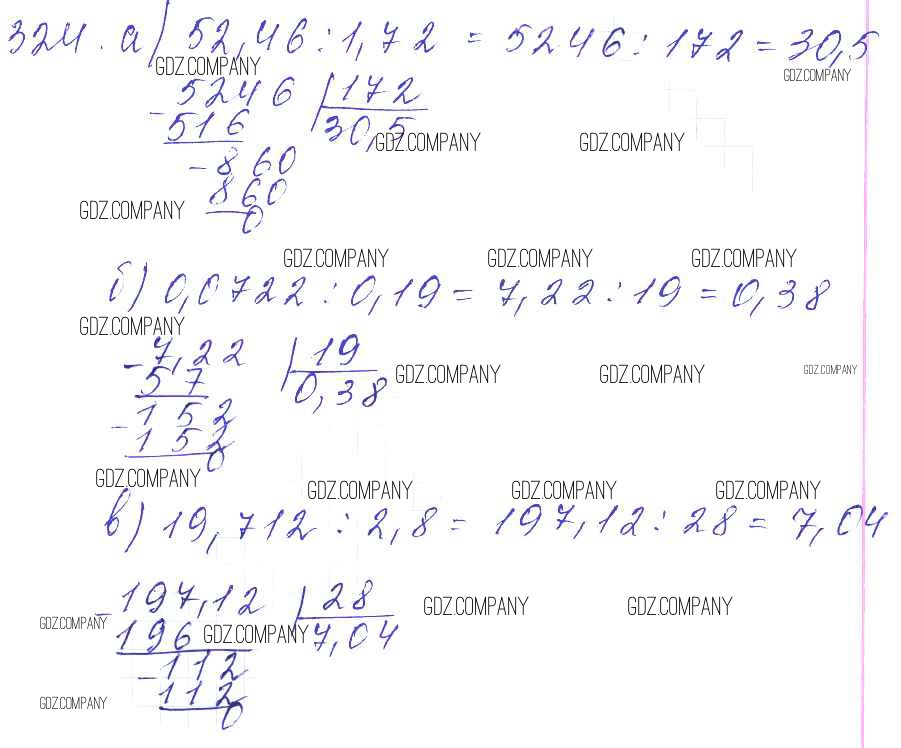 324. а) 52,46 : 1,72 = 5246 : 172 = 30,5
GDZ.COMPANY GDZ.COMPANY
- 5246 | 172
516 30,5 GDZ.COMPANY GDZ.COMPANY
- 860
GDZ.COMPANY 860
0
GDZ.COMPANY GDZ.COMPANY GDZ.COMPANY
б) 0,0722 : 0,19 = 7,22 : 19 = 0,38
GDZ.COMPANY
- 7,22 | 19
57 0,38 GDZ.COMPANY GDZ.COMPANY GDZ.COMPANY
- 152
152
0
GDZ.COMPANY GDZ.COMPANY GDZ.COMPANY GDZ.COMPANY
в) 19,712 : 2,8 = 197,12 : 28 = 7,04
- 197,12 | 28 GDZ.COMPANY GDZ.COMPANY
GDZ.COMPANY 196 GDZ.COMPANY 7,04
- 112
GDZ.COMPANY 112
0